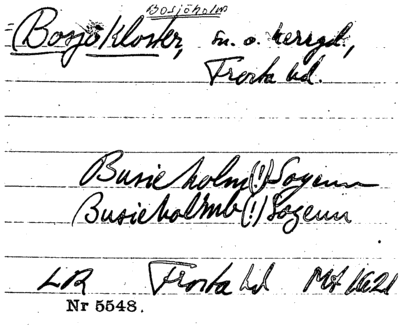 Bosjöholm
Bosjökloster, sn. o. herrgd.,
Frosta hd.
Busieholm (!) Sogenn
Busieholmb (!) Sogenn
LR Frosta hd
Nr 5548.